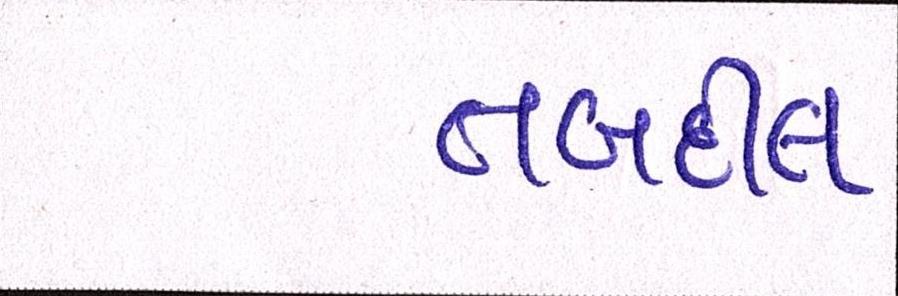 તબદીલ